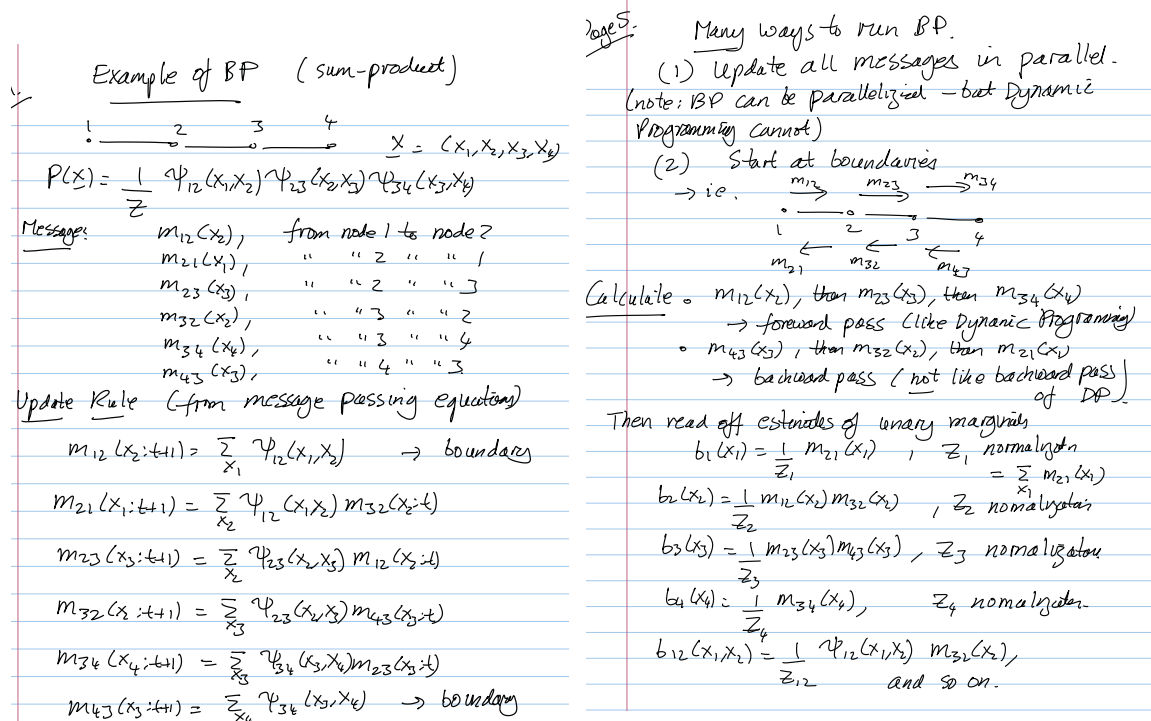 Example of BP (sum-product)
1 2 3 4
x = (x₁,x₂,x₃,x₄)
P(x) = 1/Z ψ₁₂(x₁,x₂) ψ₂₃(x₂,x₃) ψ₃₄(x₃,x₄)
Message: m₁₂(x₂), from node 1 to node 2
m₂₁(x₁), " " 2 " " 1
m₂₃(x₃), " " 2 " " 3
m₃₂(x₂), " " 3 " " 2
m₃₄(x₄), " " 3 " " 4
m₄₃(x₃), " " 4 " " 3
Update Rule (from message passing equations)
m₁₂(x₂:t+1) = Σ_x₁ ψ₁₂(x₁,x₂) → boundary
m₂₁(x₁:t+1) = Σ_x₂ ψ₁₂(x₁x₂) m₃₂(x₂:t)
m₂₃(x₃:t+1) = Σ_x₂ ψ₂₃(x₂,x₃) m₁₂(x₂:t)
m₃₂(x₂:t+1) = Σ_x₃ ψ₂₃(x₂,x₃) m₄₃(x₃:t)
m₃₄(x₄:t+1) = Σ_x₃ ψ₃₄(x₃,x₄) m₂₃(x₃:t)
m₄₃(x₃:t+1) = Σ_x₄ ψ₃₄(x₃,x₄) → boundary
Page 5.
Many ways to run BP.
(1) Update all messages in parallel.
(note: BP can be parallelized – but Dynamic
Programming cannot)
(2) Start at boundaries
→ ie. m₁₂ → m₂₃ → m₃₄ →
1 2 3 4
m₂₁ ← m₃₂ ← m₄₃ ←
Calculate • m₁₂(x₂), then m₂₃(x₃), then m₃₄(x₄)
→ foreward pass (like Dynamic Programming)
• m₄₃(x₃), then m₃₂(x₂), then m₂₁(x₁)
→ backward pass (not like backward pass
of DP).
Then read off estimates of unary marginals
b₁(x₁) = 1/Z₁ m₂₁(x₁), Z₁ normalization
= Σ_x₁ m₂₁(x₁)
b₂(x₂) = 1/Z₂ m₁₂(x₂) m₃₂(x₂), Z₂ normalization
b₃(x₃) = 1/Z₃ m₂₃(x₃) m₄₃(x₃), Z₃ normalization
b₄(x₄) = 1/Z₄ m₃₄(x₄), Z₄ normalization
b₁₂(x₁,x₂) = 1/Z₁₂ ψ₁₂(x₁,x₂) m₃₂(x₂),
and so on.